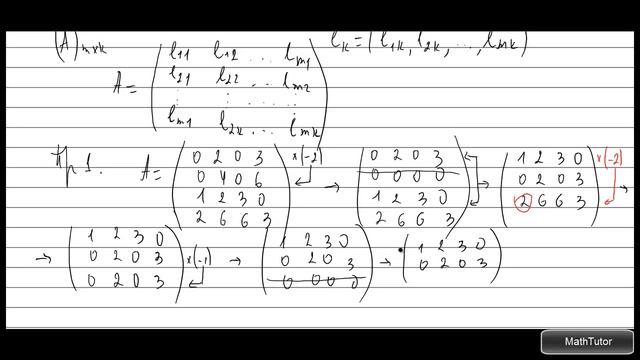 (A)m×k l_k = (l_1k, l_2k, ..., l_mk)
A = ( l_11 l_12 ... l_m1
l_21 l_22 ... l_m2
⋮ ⋮ ⋮
l_m1 l_2k ... l_mk )
Пр 1. A = (0 2 0 3; 0 4 0 6; 1 2 3 0; 2 6 6 3) ×(-2) → (0 2 0 3; 0 0 0 0; 1 2 3 0; 2 6 6 3) → (1 2 3 0; 0 2 0 3; 2 6 6 3) ×(-2) →
→ (1 2 3 0; 0 2 0 3; 0 2 0 3) ×(-1) → (1 2 3 0; 0 2 0 3; 0 0 0 0) → (1 2 3 0; 0 2 0 3)
MathTutor